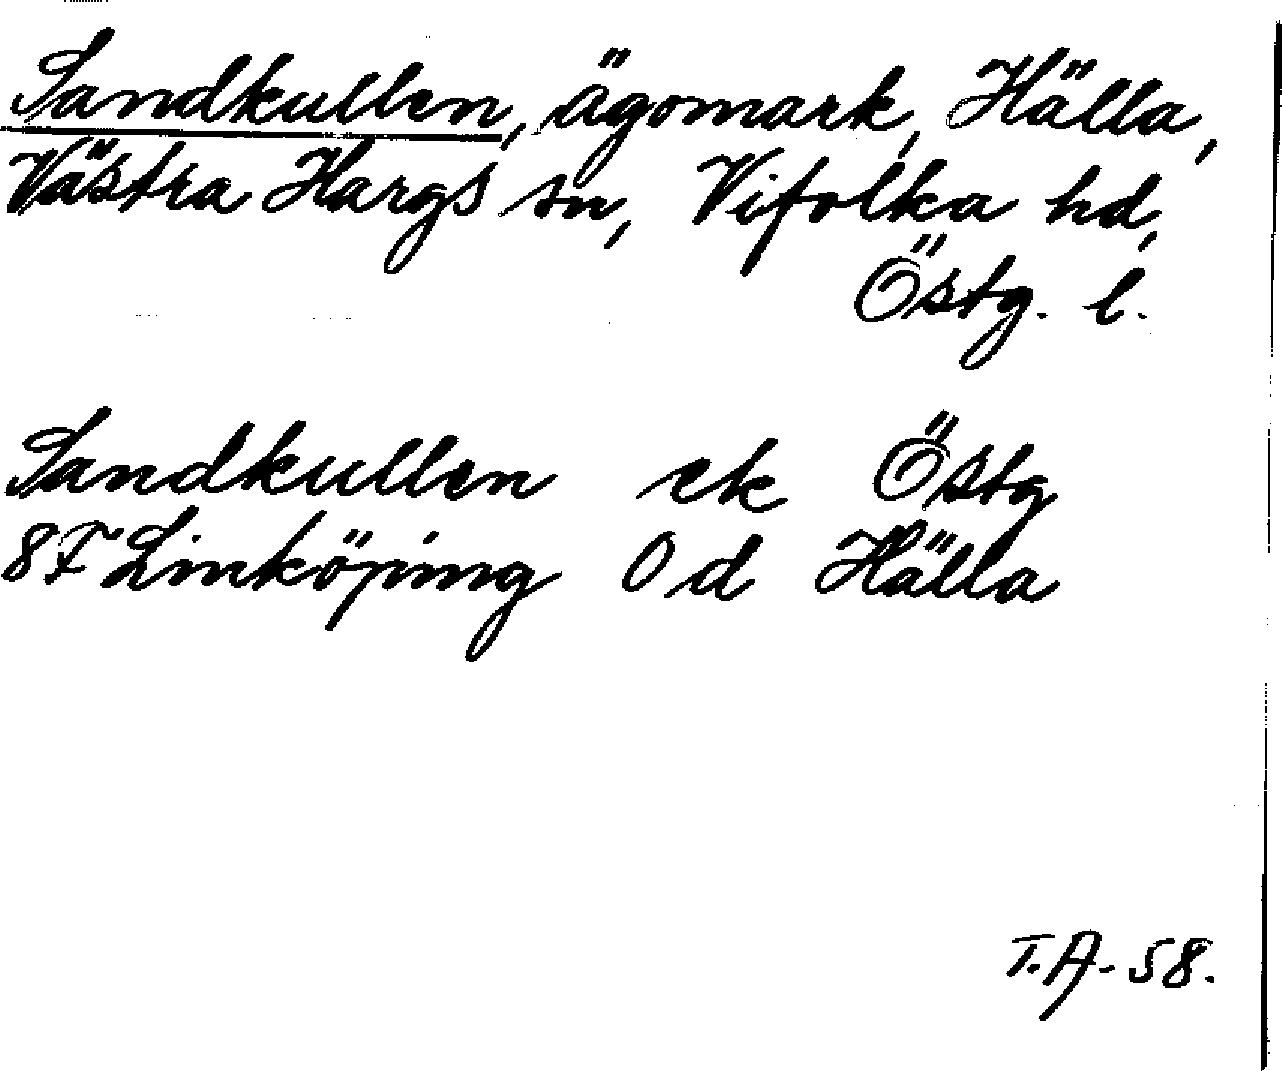 Sandkullen, ägomark, Hälla,
Västra Hargs sn, Vifolka hd,
Östg. l.
Sandkullen ek Östg
8F Linköping 0d Hälla
T.A. 58.